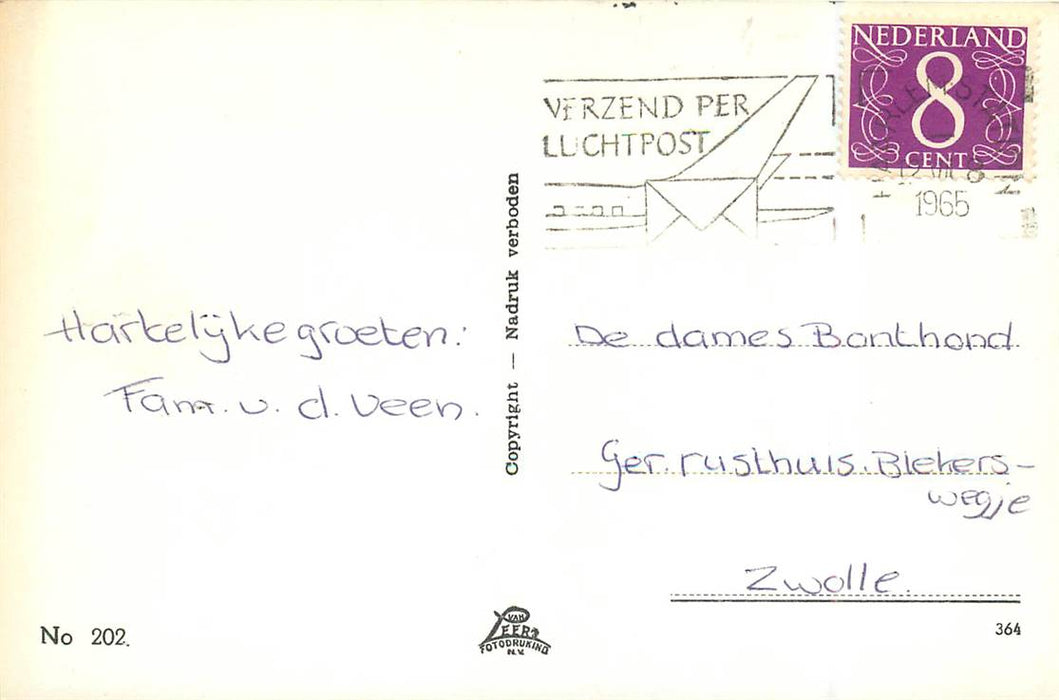 NEDERLAND
8
CENT
VERZEND PER
LUCHTPOST
1965
Hartelijke groeten:
Fam. v. d. Veen.
Copyright — Nadruk verboden
De dames Bonthond.
Ger. rusthuis. Blekers-
wegje
Zwolle.
No 202.
VAN
LEER'S
FOTODRUKIND
N.V.
364